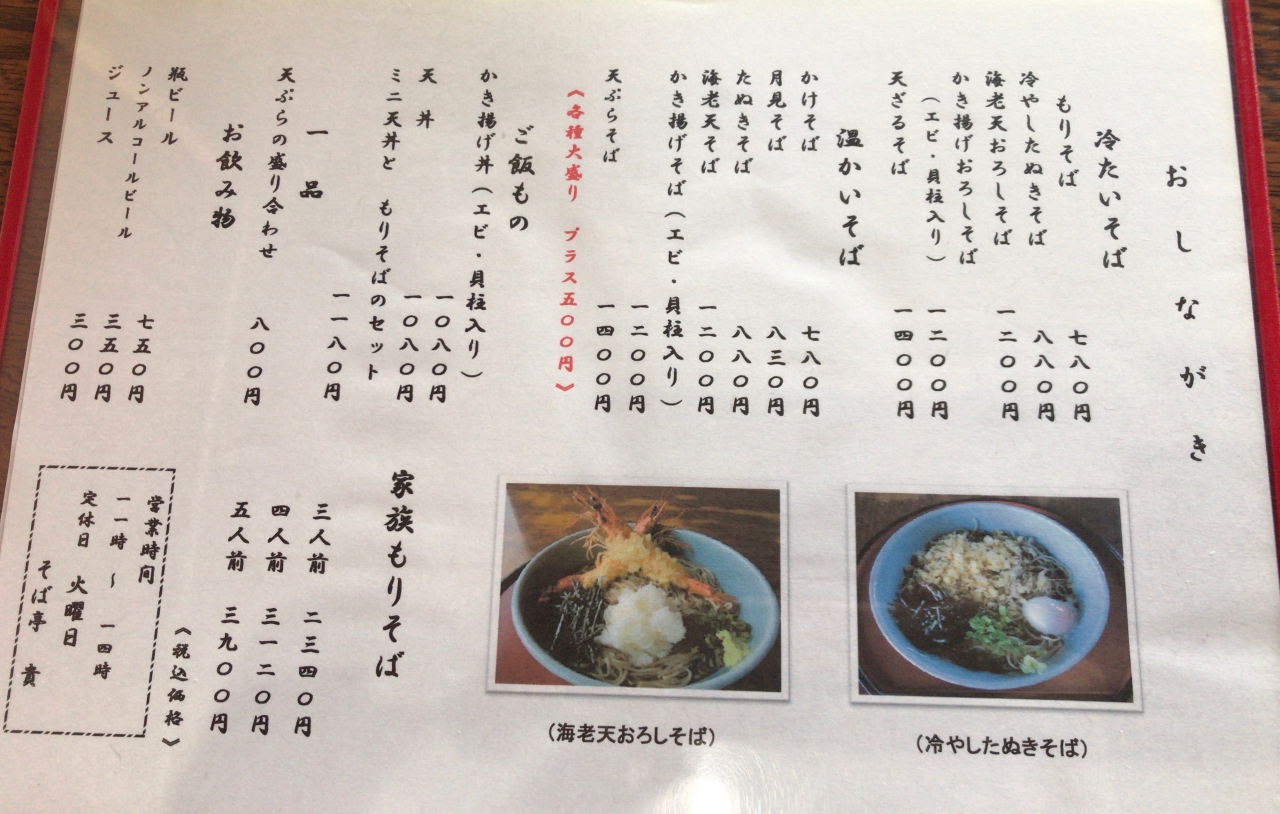 おしながき
冷たいそば
もりそば 七八〇円
冷やしたぬきそば 八八〇円
海老天おろしそば 一二〇〇円
かき揚げおろしそば
(エビ・貝柱入り) 一二〇〇円
天ざるそば 一四〇〇円
温かいそば
かけそば 七八〇円
月見そば 八三〇円
たぬきそば 八八〇円
海老天そば 一二〇〇円
かき揚げそば(エビ・貝柱入り)
一二〇〇円
天ぷらそば 一四〇〇円
《各種大盛り プラス五〇〇円》
ご飯もの
かき揚げ丼(エビ・貝柱入り)
一〇八〇円
天 丼 一〇八〇円
ミニ天丼と もりそばのセット
一一八〇円
一 品
天ぷらの盛り合わせ 八〇〇円
お飲み物
瓶ビール 七五〇円
ノンアルコールビール 三五〇円
ジュース 三〇〇円
(冷やしたぬきそば)
(海老天おろしそば)
家族もりそば
三人前 二三四〇円
四人前 三一二〇円
五人前 三九〇〇円
《税込価格》
営業時间
一一時 〜 一四時
定休日 火曜日
そば亭 貴